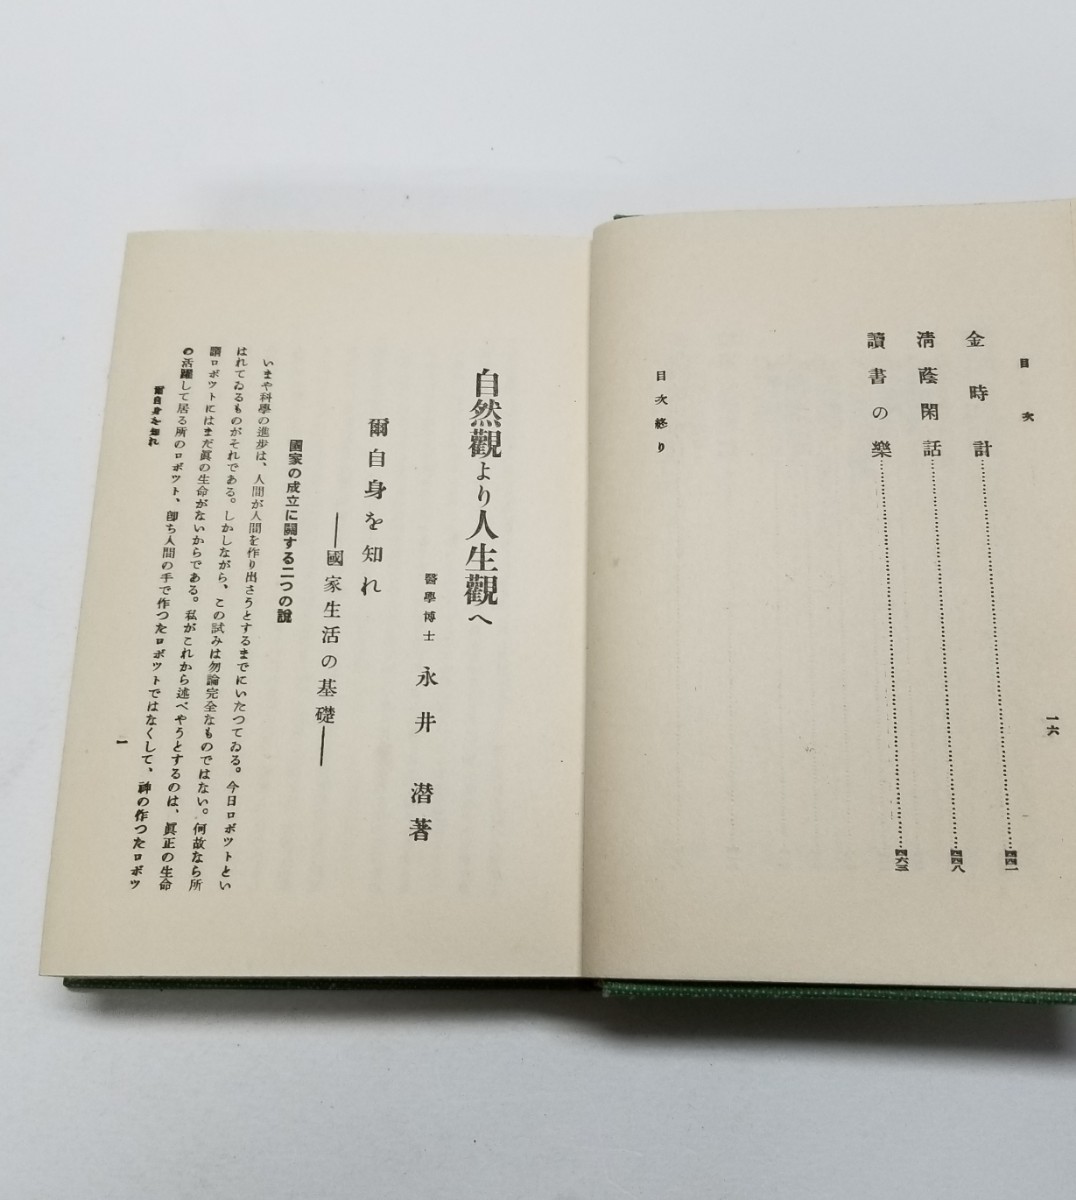 目次
一六
金時計……四四一
清蔭閑話……四四八
讀書の樂……四六三
目次終り
自然觀より人生觀へ
醫學博士 永井潜著
爾自身を知れ
―國家生活の基礎―
國家の成立に關する二つの說
いまや科學の進步は、人間が人間を作り出さうとするまでにいたつてゐる。今日ロボツトとい
はれてゐるものがそれである。しかしながら、この試みは勿論完全なものではない。何故なら所
謂ロボツトにはまだ眞の生命がないからである。私がこれから述べやうとするのは、眞正の生命
の活躍して居る所のロボツト、卽ち人間の手で作つたロボツトではなくして、神の作つたロボツ
爾自身を知れ
一